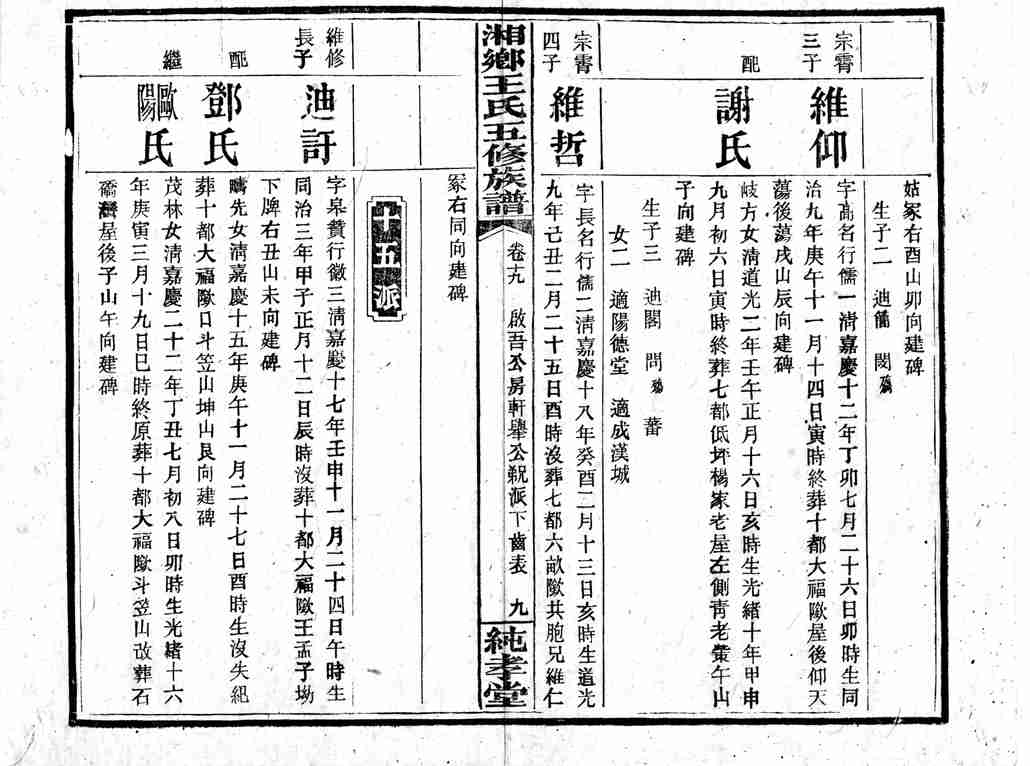 姑冢右酉山卯向建碑
生子二　迪儒　閔殤
宗霄三子
維仰
字高名行儒一清嘉慶十二年丁卯七月二十六日卯時生同
治九年庚午十一月十四日寅時終葬十都大福歐屋後仰天
蕩後蕩戌山辰向建碑
配
謝氏
岐方女清道光二年壬午正月十六日亥時生光緒十年甲申
九月初六日寅時終葬七都低坪楊家老屋左側青老塋午山
子向建碑
生子三　迪閣　問殤　蕃
女二　適陽德堂　適成漢城
宗霄四子
維哲
字長名行儒二清嘉慶十八年癸酉二月十三日亥時生道光
九年己丑二月二十五日酉時沒葬七都六畝歐共胞兄維仁
湘鄉王氏五修族譜
卷十九　啟吾公房軒舉公派下齒表　九
純孝堂
冢右同向建碑
十五派
維修長子
迪訐
字皋贊行徽三清嘉慶十七年壬申十一月二十四日午時生
同治三年甲子正月十二日辰時沒葬十都大福歐王孟子坳
下牌右丑山未向建碑
配
鄧氏
疇先女清嘉慶十五年庚午十一月二十七日酉時生沒失紀
葬十都大福歐口斗笠山坤山艮向建碑
繼
歐陽氏
茂林女清嘉慶二十二年丁丑七月初八日卯時生光緒十六
年庚寅三月十九日巳時終原葬十都大福歐斗笠山改葬石
礄灣屋後子山午向建碑